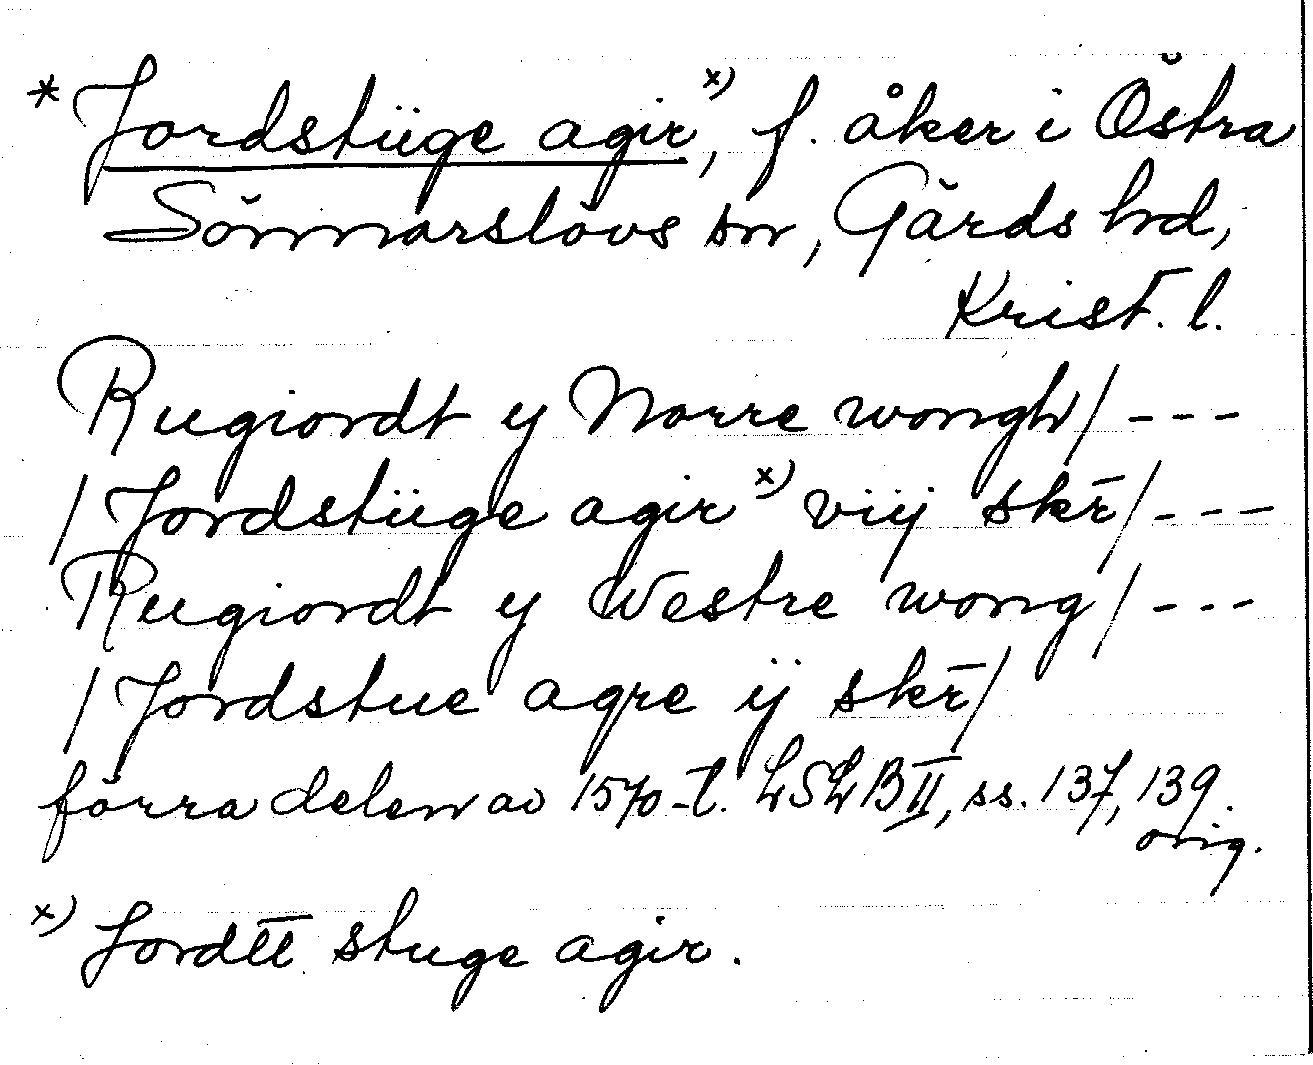 * Jordstüge agir x), f. åker i Östra
Sönnarslövs sn, Gärds hd,
Krist. l.
Rugiordt y Norre wongh/ ---
/Jordstüge agir x) viij skr̄/ ---
Rugiordt y Westre wong/ ---
/Jordstue agre ij skr̄/
förra delen av 1570-t. LSLB II, ss. 137, 139.
orig.
x) Jordēē stuge agir.